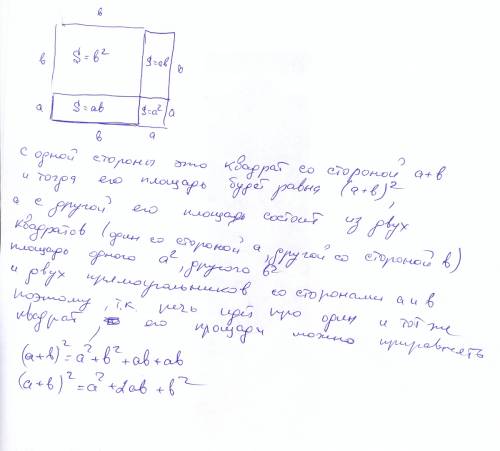 в
в S=b² S=ab в
a S=ab S=a² a
в a
С одной стороны это квадрат со стороной a+в
и тогда его площадь будет равна (a+в)²,
а с другой его площадь состоит из двух
квадратов (один со стороной a, другой со стороной в)
площадь одного a², другого в²
и двух прямоугольников со сторонами a и в
поэтому, т.к. речь идёт про один и тот же
квадрат, его площади можно приравнять
(a+в)²=a²+в²+ab+ab
(a+в)²=a²+2ab+в²